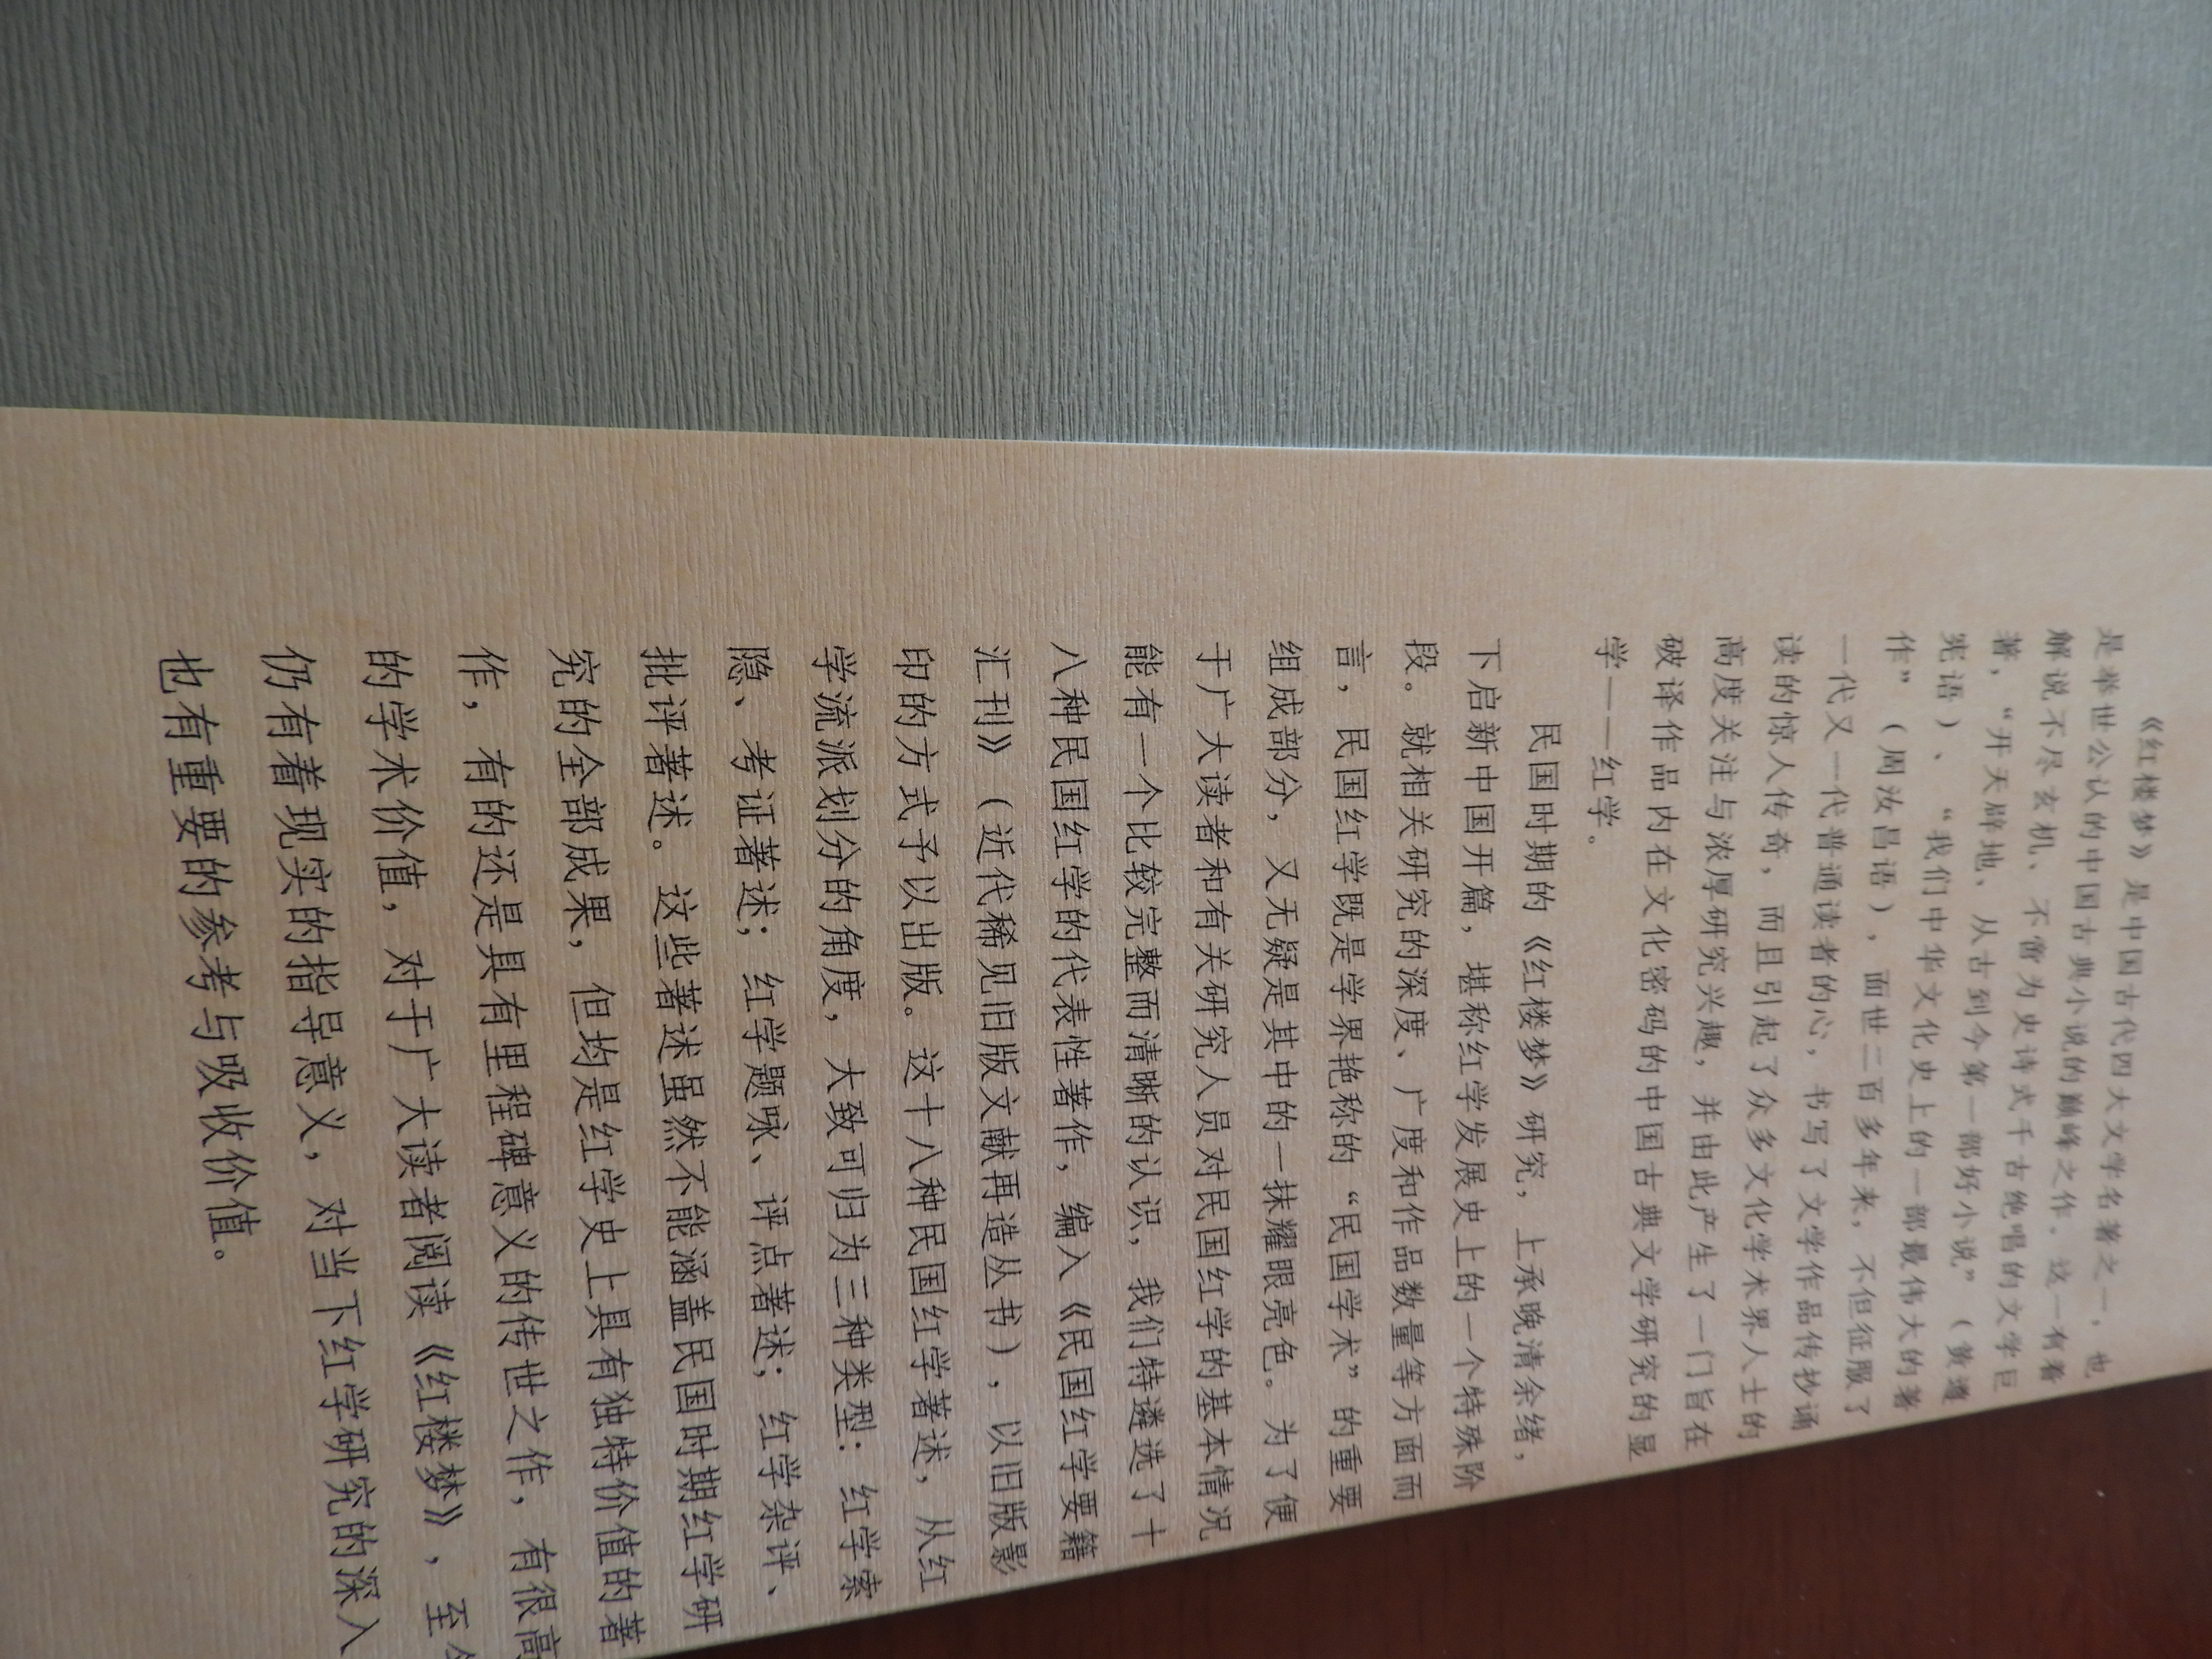 《红楼梦》是中国古代四大文学名著之一，也
是举世公认的中国古典小说的巅峰之作。这一有着
解说不尽玄机、不啻为史诗式千古绝唱的文学巨
著，“开天辟地、从古到今第一部好小说”（黄遵
宪语）、“我们中华文化史上的一部最伟大的著
作”（周汝昌语），面世二百多年来，不但征服了
一代又一代普通读者的心，书写了文学作品传抄诵
读的惊人传奇，而且引起了众多文化学术界人士的
高度关注与浓厚研究兴趣，并由此产生了一门旨在
破译作品内在文化密码的中国古典文学研究的显
学——红学。
民国时期的《红楼梦》研究，上承晚清余绪，
下启新中国开篇，堪称红学发展史上的一个特殊阶
段。就相关研究的深度、广度和作品数量等方面而
言，民国红学既是学界艳称的“民国学术”的重要
组成部分，又无疑是其中的一抹耀眼亮色。为了便
于广大读者和有关研究人员对民国红学的基本情况
能有一个比较完整而清晰的认识，我们特遴选了十
八种民国红学的代表性著作，编入《民国红学要籍
汇刊》（近代稀见旧版文献再造丛书），以旧版影
印的方式予以出版。这十八种民国红学著述，从红
学流派划分的角度，大致可归为三种类型：红学索
隐、考证著述；红学题咏、评点著述；红学杂评、
批评著述。这些著述虽然不能涵盖民国时期红学研
究的全部成果，但均是红学史上具有独特价值的著
作，有的还是具有里程碑意义的传世之作，有很高
的学术价值，对于广大读者阅读《红楼梦》，至今
仍有着现实的指导意义，对当下红学研究的深入
也有重要的参考与吸收价值。